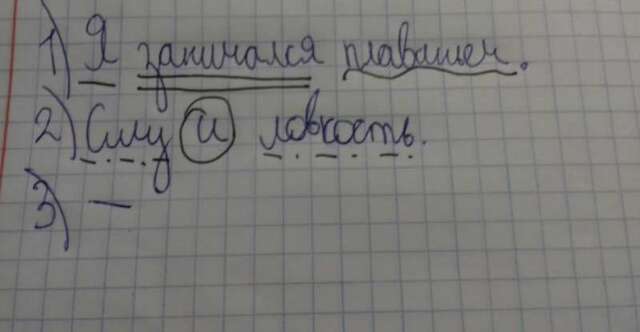 1) Я занимался плаванием.
2) Силу и ловкость.
3) —